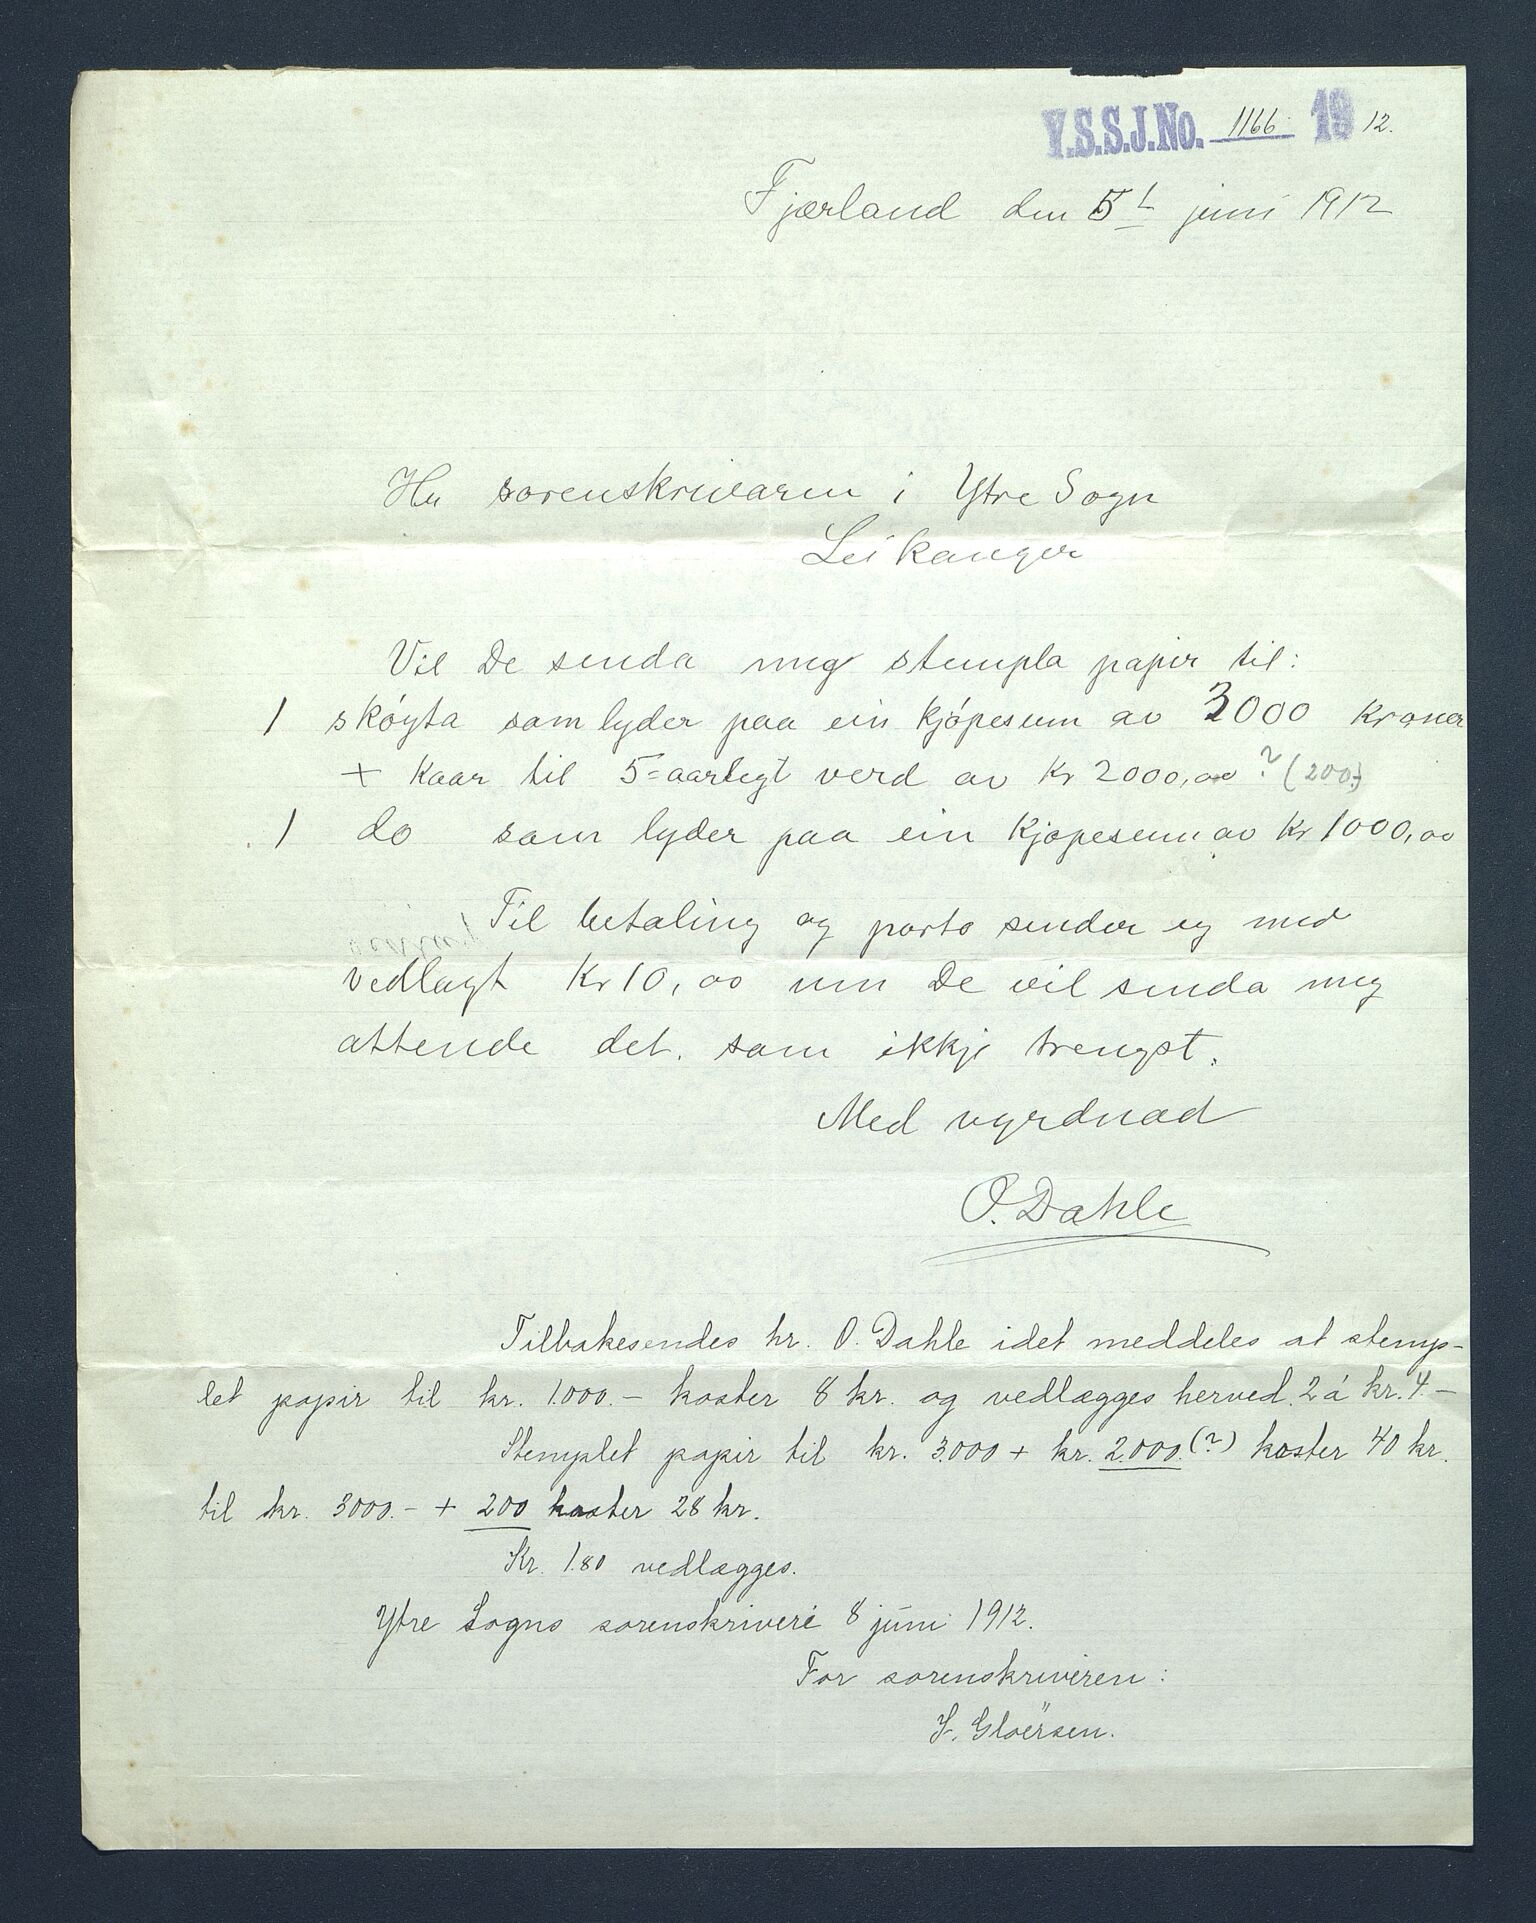 Y.S.S.J.No. 1166 1912.
Fjærland den 5t juni 1912
Hr sorenskrivaren i Ytre Sogn
Leikanger
Vil De senda meg stempla papir til:
1 skøyta som lyder paa ein kjøpesum av 3000 kroner
+ kaar til 5-aarlegt verd av Kr 2000,00 ? (200.-)
1 do som lyder paa ein kjøpesum av Kr 1000,00
Til betaling og porto sender eg med
vedlagt Kr 10,00 um De vil senda meg
attende det. som ikkje trengst.
Med vyrdnad
O. Dahle
Tilbakesendes hr. O. Dahle idet meddeles at stemp-
let papir til kr. 1.000.- koster 8 kr. og vedlægges herved. 2 á kr. 4.-
Stemplet papir til kr. 3.000 + kr. 2.000.(?) koster 40 kr.
til kr. 3000.- + 200 koster 28 kr.
Kr. 1.80 vedlægges.
Ytre Sogns sorenskriveri 8 juni 1912.
For sorenskriveren:
Gloërsen.